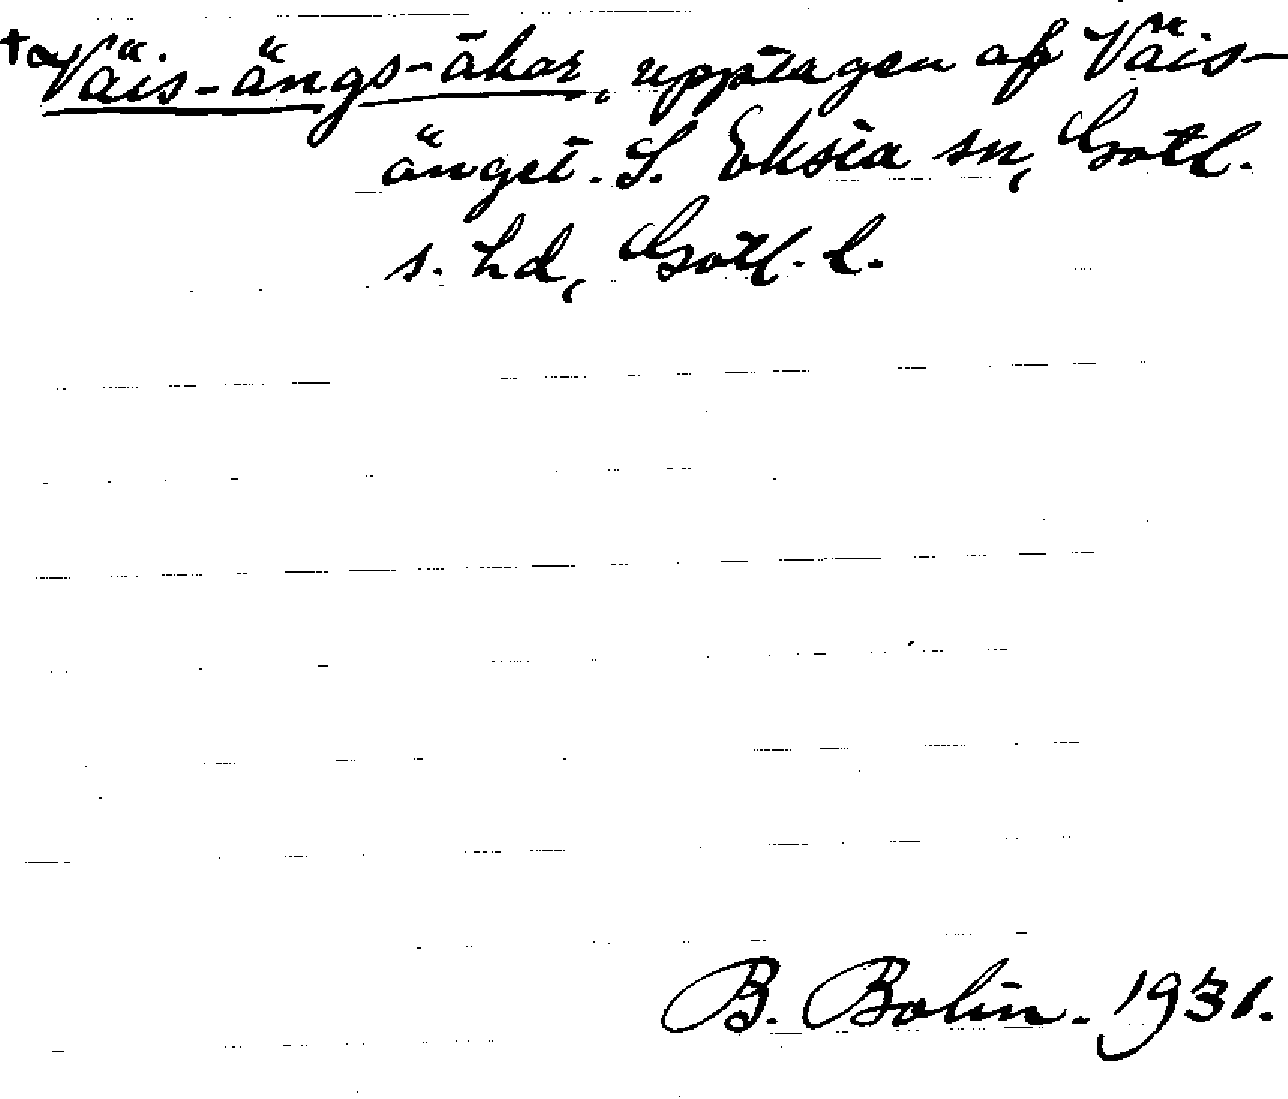 †a Väis-ängs-åkar, upptagen af Väis-
änget. S. Eksta sn, Gotl.
s. hd, Gotl. l.
B. Bolin. 1931.